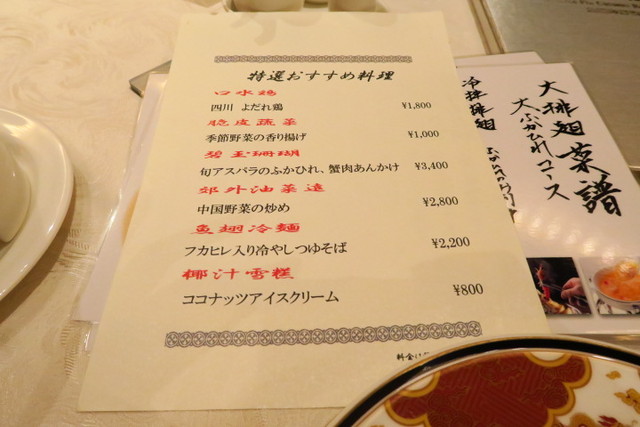 特選おすすめ料理
口水鶏
四川 よだれ鶏 ¥1,800
脆皮蔬菜
季節野菜の香り揚げ ¥1,000
碧玉珊瑚
旬アスパラのふかひれ、蟹肉あんかけ ¥3,400
郊外油菜遠
中国野菜の炒め ¥2,800
魚翅冷麺
フカヒレ入り冷やしつゆそば ¥2,200
椰汁雪糕
ココナッツアイスクリーム ¥800
料金は
大排翅菜譜
大ふかひれコース